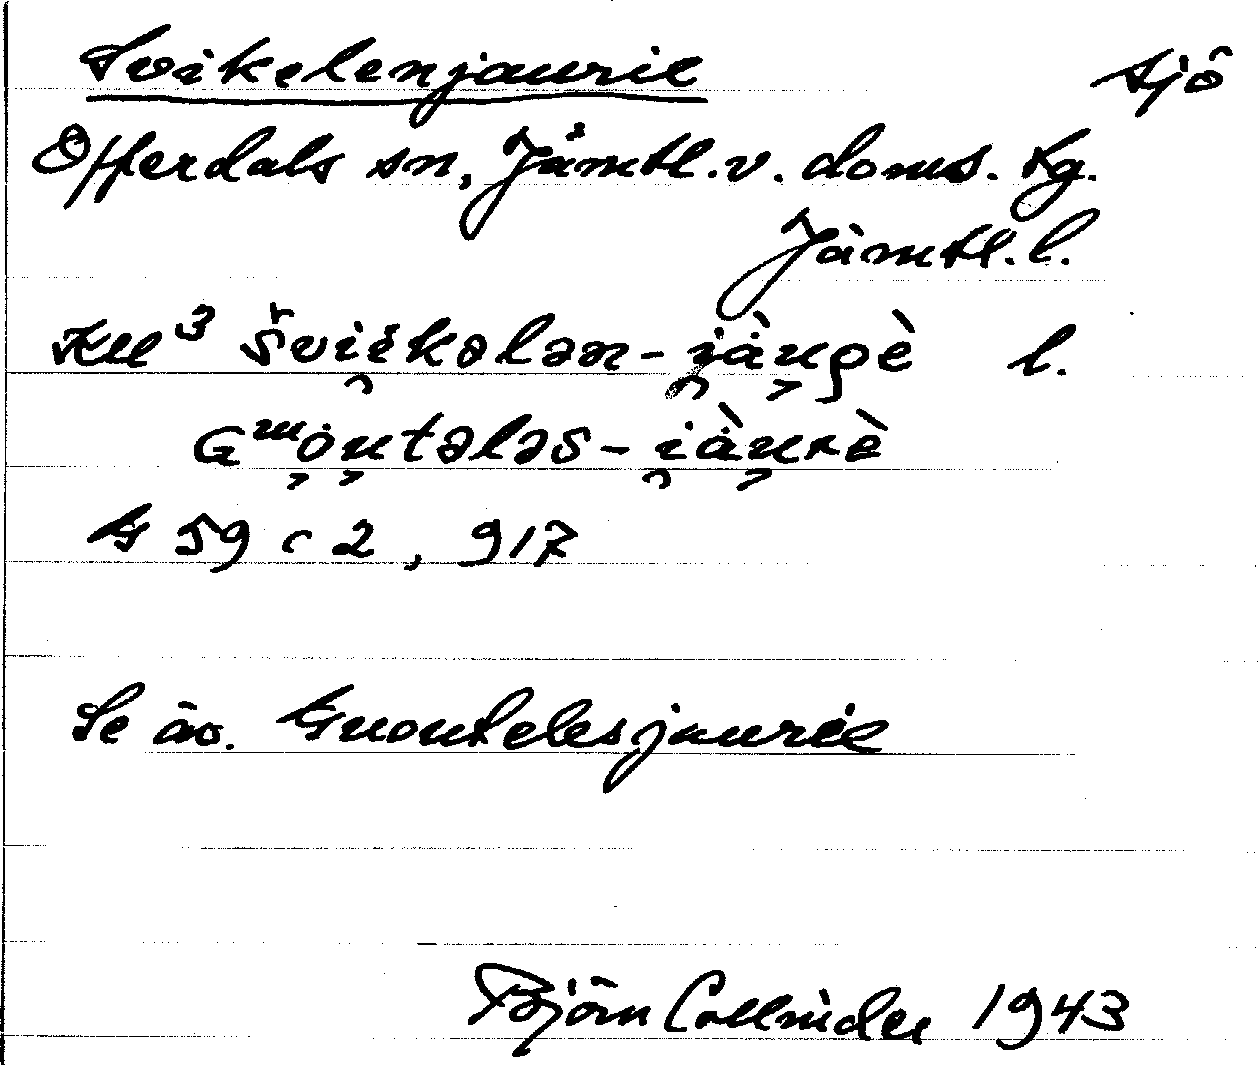 Svikelenjaurie sjö
Offerdals sn, Jämtl. v. doms. tg.
Jämtl. l.
KU³ švi̯èkələn-i̯àu̯ρè l.
Gᵘ̯ȯu̯tələs-i̯àu̯rè
G 59 c 2, 917
Se äv. Guoutelesjaurie
Björn Collinder 1943